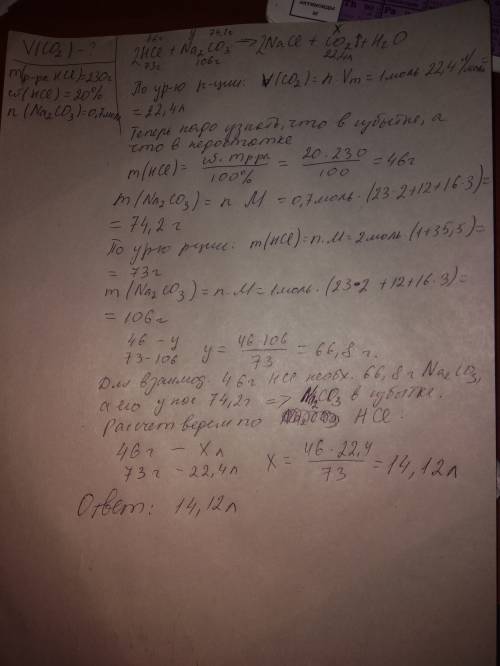 V(CO₂) - ?
m р-ра HCl = 230г
ω(HCl) = 20%
n (Na₂CO₃) = 0,7моль
46г y 74,2г X
2HCl + Na₂CO₃ → 2NaCl + CO₂↑ + H₂O
73г 106г 22,4л
По ур-ю р-ции: V(CO₂) = n · Vm = 1моль 22,4 л/моль
= 22,4л
Теперь надо узнать, что в избытке, а
что в недостатке
m(HCl) = ω. mр-ра / 100% = 20 · 230 / 100 = 46г
m (Na₂CO₃) = n M = 0,7моль · (23·2+12+16·3) =
= 74,2 г
По ур-ю р-ции: m(HCl) = n. M = 2моль (1+35,5) =
= 73г
m (Na₂CO₃) = n. M = 1моль · (23·2 + 12+16·3) =
= 106г
46 - y
73 - 106 y = 46·106 / 73 = 66,8 г.
Для взаимод. 46г HCl необх. 66,8г Na₂CO₃,
а его у нас 74,2г => Na₂CO₃ в избытке.
Расчет ведем по HCl.
46г - X л
73г - 22,4л X = 46·22,4 / 73 = 14,12л
Ответ: 14,12л